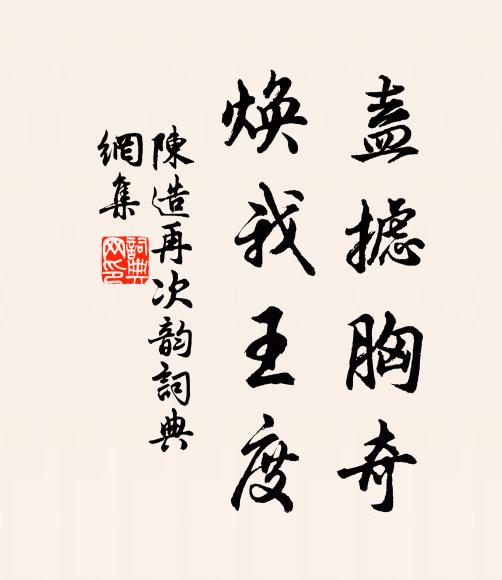 盍攄胸奇
煥我王度
陳造再次韵詞典
網集
詞典網印